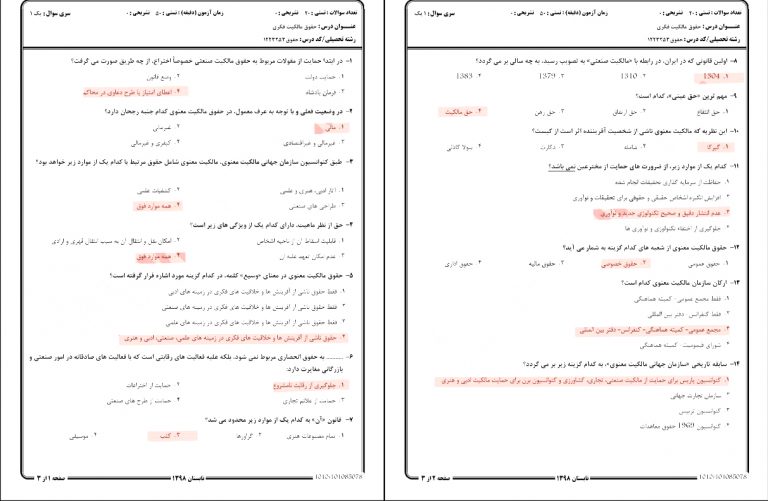 تعداد سوالات : تستی : ۲۰ تشریحی : ۰
زمان آزمون (دقیقه) : تستی : ۵۰ تشریحی : ۰
سری سوال : یک ۱
عنـــوان درس : حقوق مالکیت فکری
رشته تحصیلی/کد درس : حقوق ۱۲۲۳۲۵۳
۱- در ابتدا حمایت از مقولات مربوط به حقوق مالکیت صنعتی خصوصاً اختراع، از چه طریق صورت می گرفت؟
۱. حمایت دولت
۲. وضع قانون
۳. فرمان پادشاه
۴. اعطای امتیاز یا طرح دعاوی در محاکم
۲- در وضعیت فعلی و با توجه به عرف معمول، در حقوق مالکیت معنوی کدام جنبه رجحان دارد؟
۱. مالی
۲. غیرمالی
۳. غیرمالی و غیراقتصادی
۴. کیفری و غیرمالی
۳- طبق کنوانسیون سازمان جهانی مالکیت معنوی، مالکیت معنوی شامل حقوق مرتبط با کدام یک از موارد زیر خواهد بود؟
۱. آثار ادبی، هنری و علمی
۲. کشفیات علمی
۳. طرحی های صنعتی
۴. همه موارد فوق
۴- حق از نظر ماهیت، دارای کدام یک از ویژگی های زیر است؟
۱. قابلیت اسقاط آن از ناحیه اشخاص
۲. امکان نقل و انتقال آن به سبب انتقال قهری و ارادی
۳. عدم امکان تعهد علیه آن
۴. همه موارد فوق
۵- حقوق مالکیت معنوی در معنای «وسیع» کلمه، در کدام گزینه مورد اشاره قرار گرفته است؟
۱. فقط حقوق ناشی از آفرینش ها و خلاقیت های فکری در زمینه های ادبی
۲. فقط حقوق ناشی از آفرینش ها و خلاقیت های فکری در زمینه های صنعتی
۳. فقط حقوق ناشی از آفرینش ها و خلاقیت های فکری در زمینه های علمی
۴. حقوق ناشی از آفرینش ها و خلاقیت های فکری در زمینه های علمی، صنعتی، ادبی و هنری
۶- .......... به حقوق انحصاری مربوط نمی شود، بلکه علیه فعالیت های رقابتی است که با فعالیت های صادقانه در امور صنعتی و
بازرگانی مغایرت دارد:
۱. جلوگیری از رقابت نامشروع
۲. حمایت از اختراعات
۳. حمایت از علائم تجاری
۴. حمایت از طرح های صنعتی
۷- قانون «آن» به کدام یک از موارد زیر محدود می شد؟
۱. تمام مصنوعات هنری
۲. گراورها
۳. کتب
۴. موسیقی
صفحه ۱ از ۳
تابستان ۱۳۹۸
1010/101085078
تعداد سوالات : تستی : ۲۰ تشریحی : ۰
زمان آزمون (دقیقه) : تستی : ۵۰ تشریحی : ۰
سری سوال : ۱ یک
عنـــوان درس : حقوق مالکیت فکری
رشته تحصیلی/کد درس : حقوق ۱۲۲۳۲۵۳
۸- اولین قانونی که در ایران، در رابطه با «مالکیت صنعتی» به تصویب رسید، به چه سالی بر می گردد؟
۱. 1304
۲. 1310
۳. 1379
۴. 1383
۹- مهم ترین «حق عینی»، کدام است؟
۱. حق انتفاع
۲. حق ارتفاق
۳. حق رهن
۴. حق مالکیت
۱۰- این نظریه که مالکیت معنوی ناشی از شخصیت آفریننده اثر است از کیست؟
۱. گیرکا
۲. شامله
۳. دکارت
۴. سولا کادنی
۱۱- کدام یک از موارد زیر، از ضرورت های حمایت از مخترعین نمی باشد؟
۱. حفاظت از سرمایه گذاری تحقیقات انجام شده
۲. افزایش انگیزه اشخاص حقیقی و حقوقی برای تحقیقات و نوآوری
۳. عدم انتشار دقیق و صحیح تکنولوژی جدید و نوآوری
۴. جلوگیری از اختفاء تکنولوژی و نوآوری ها
۱۲- حقوق مالکیت معنوی از شعبه های کدام گزینه به شمار می آید؟
۱. حقوق عمومی
۲. حقوق خصوصی
۳. حقوق مالیه
۴. حقوق اداری
۱۳- ارکان سازمان مالکیت معنوی کدام است؟
۱. فقط مجمع عمومی- کمیته هماهنگی
۲. فقط کنفرانس- دفتر بین المللی
۳. مجمع عمومی- کمیته هماهنگی- کنفرانس- دفتر بین المللی
۴. شورای قیمومیت- کمیته هماهنگی
۱۴- سابقه تاریخی «سازمان جهانی مالکیت معنوی»، به کدام گزینه زیر بر می گردد؟
۱. کنوانسیون پاریس برای حمایت از مالکیت صنعتی، تجاری، کشاورزی و کنوانسیون برن برای حمایت مالکیت ادبی و هنری
۲. سازمان تجارت جهانی
۳. کنوانسیون تریپس
۴. کنوانسیون 1969 حقوق معاهدات
صفحه ۲ از ۳
تابستان ۱۳۹۸
1010/101085078